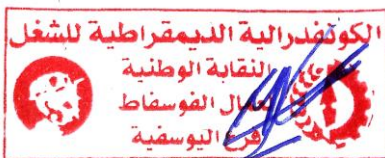 الكونفدرالية الديمقراطية للشغل
النقابة الوطنية
لعمال الفوسفاط
فرع اليوسفية